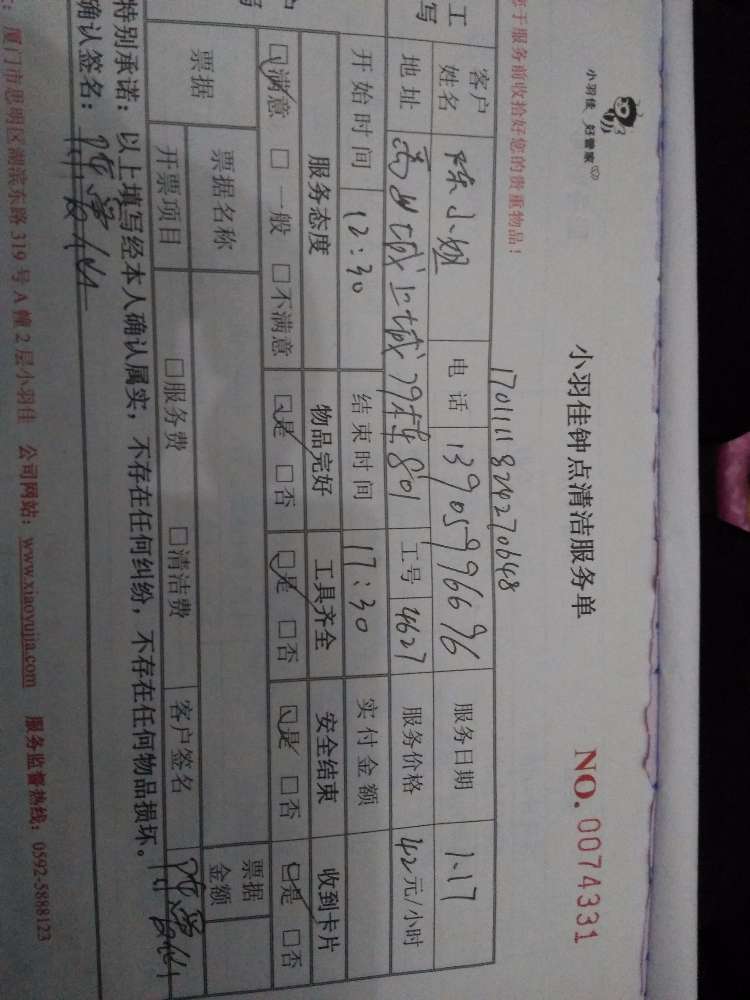 小羽佳 妇管家
小羽佳钟点清洁服务单
NO. 0074331
于服务前收拾好您的贵重物品！
1701111824270648
工 客户姓名 陈小姐 电话 13905996696 服务日期 1.17
写 地址 上城 801 工号 4627 服务价格 42元/小时
开始时间 12:30 结束时间 17:30 实付金额
服务态度 物品完好 工具齐全 安全结束 收到卡片
☑满意 □一般 □不满意 ☑是 □否 ☑是 □否 ☑是 □否 ☑是 □否
票据 票据名称 票据金额
开票项目 □服务费 □清洁费 客户签名
特别承诺：以上填写经本人确认属实，不存在任何纠纷，不存在任何物品损坏。
确认签名：
厦门市思明区湖滨东路319号A幢2层小羽佳 公司网站：www.xiaoyujia.com 服务监督热线：0592-5888123